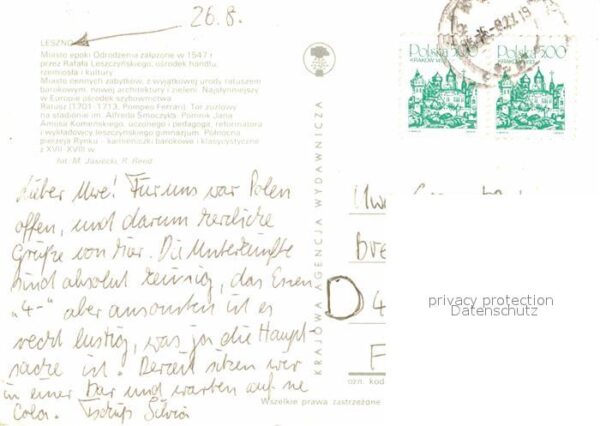 26.8.
LESZNO
Miasto epoki Odrodzenia założone w 1547 r.
przez Rafała Leszczyńskiego, ośrodek handlu,
rzemiosła i kultury.
Miasto cennych zabytków, z wyjątkowej urody ratuszem
barokowym, nowej architektury i zieleni. Najsłynniejszy
w Europie ośrodek szybownictwa.
Ratusz (1701-1713, Pompeo Ferrari). Tor żużlowy
na stadionie im. Alfreda Smoczyka. Pomnik Jana
Amosa Komeńskiego, uczonego i pedagoga, reformatora
i wykładowcy leszczyńskiego gimnazjum. Północna
pierzeja Rynku - kamieniczki barokowe i klasycystyczne
z XVII-XVIII w.
fot. M. Jasiecki, R. Bend
Lieber Uwe! Für uns war Polen
offen, und darum herzliche
Grüße von hier. Die Unterkünfte
sind absolut , das Essen
„4-" aber ansonsten ist es
recht lustig, was ja die Haupt-
sache ist. Derzeit sitzen wir
in einer Bar und warten auf ne
Cola. Tschüß Silvia
KRAJOWA AGENCJA WYDAWNICZA
Polska 5.00
KRAKÓW
Polska 5.00
KRAKÓW
Uwe
Bre
D 4
F
ozn. kod
Wszelkie prawa zastrzeżone
privacy protection
Datenschutz